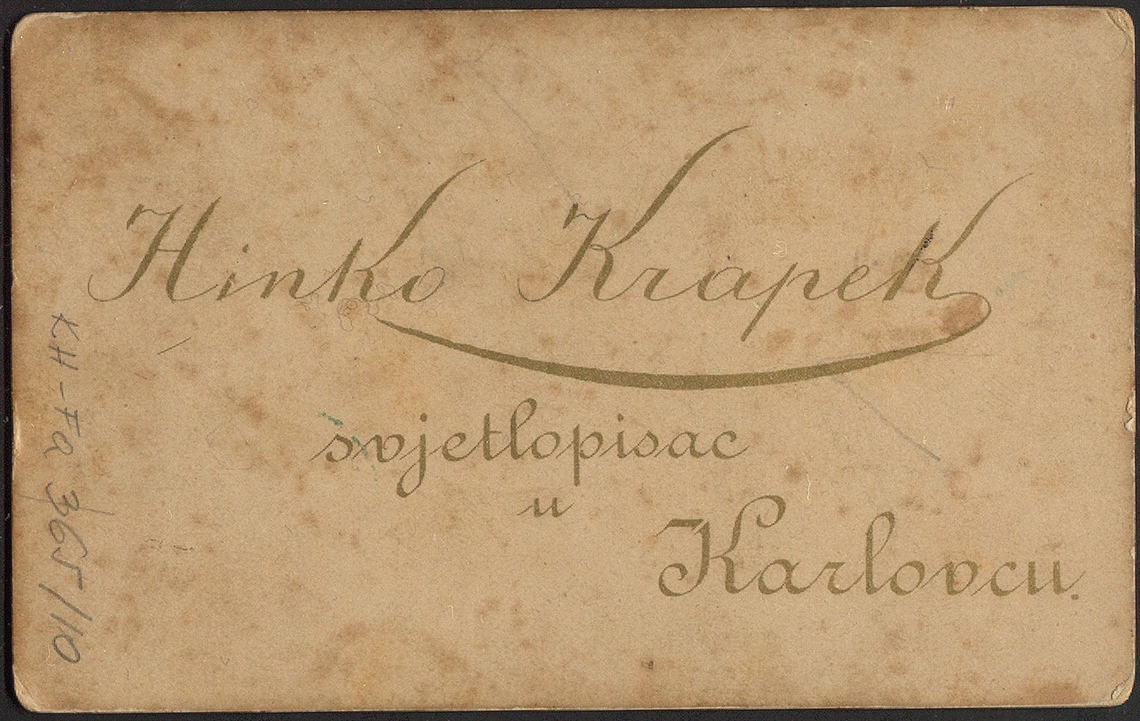 Hinko Krapek
svjetlopisac
u
Karlovcu.
KH-Fa 365/110